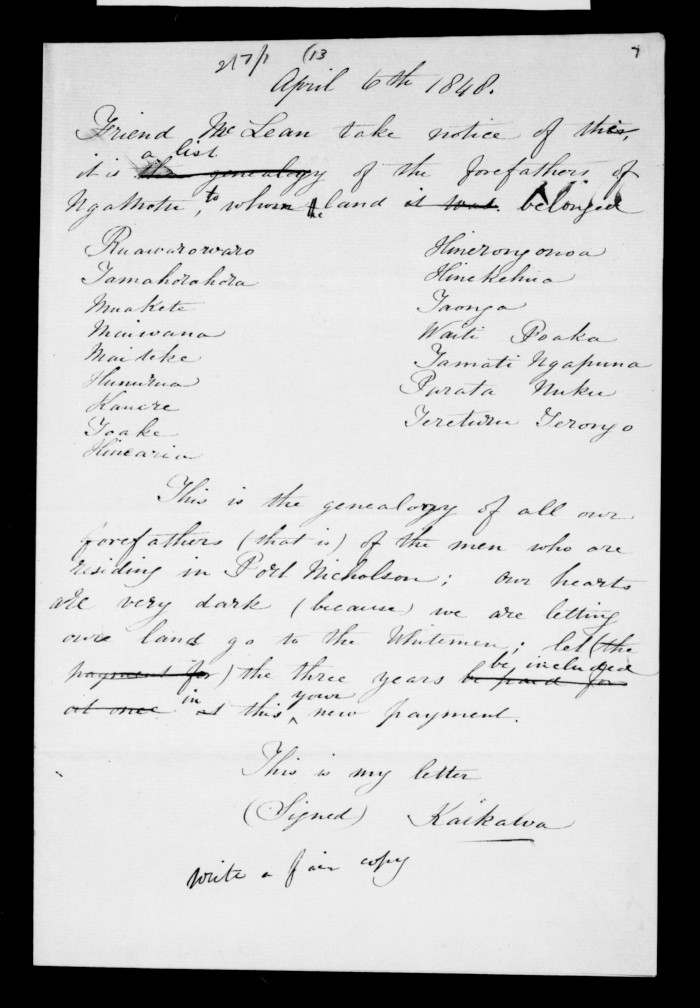 217/1 (13
7
April 6th 1848.
Friend Mc Lean take notice of this,
a list
it is the genealogy of the forefathers of
Ngamotu, to whom the land is was belonged
Ruawarowaro
Tamahorahora
Muakete
Maiwana
Maiteke
Hunurua
Kauere
Toake
Hinearia
Hinerongonoa
Hinekehua
Taonga
Waiti Poaka
Tamati Ngapuna
Parata Nuku
Teretiuru Terongo
This is the genealogy of all our
forefathers (that is) of the men who are
residing in Port Nicholson; our hearts
are very dark (because) we are letting
our land go to the Whitemen; let (the
be included
payment for) the three years be paid for
in your
at once at this ^ new payment.
This is my letter
(Signed) Kaikawa
write a fair copy